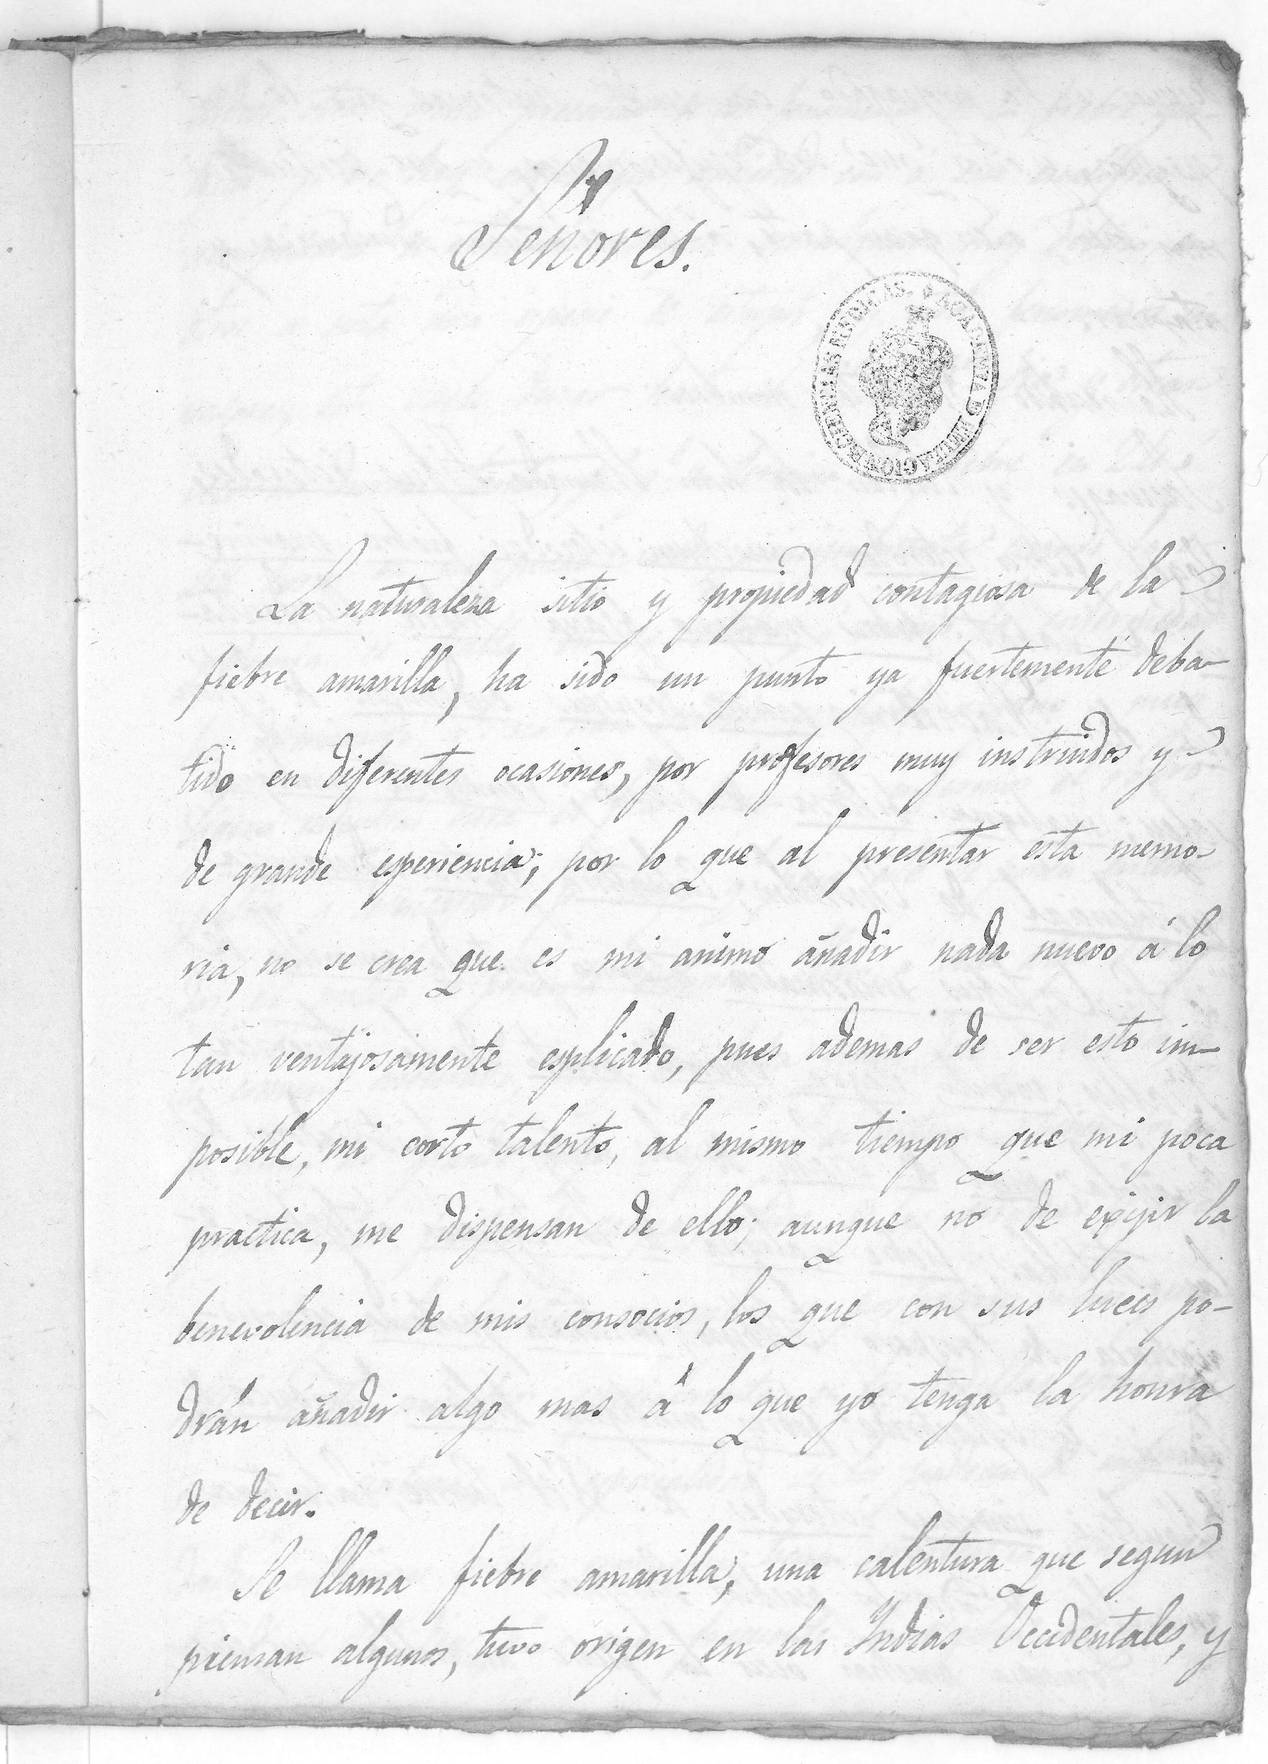 Señores.
ACADEMIA DE EMULACION DE CIENCIAS MEDICAS.
La naturaleza sitio y propiedad contagiosa de la
fiebre amarilla, ha sido un punto ya fuertemente deba-
tido en diferentes ocasiones, por profesores muy instruidos y
de grande esperiencia; por lo que al presentar esta memo-
ria, no se crea que es mi animo añadir nada nuevo á lo
tan ventajosamente esplicado, pues ademas de ser esto im-
posible, mi corto talento, al mismo tiempo que mi poca
practica, me dispensan de ello; aunque no de exijir la
benevolencia de mis consocios, los que con sus luces po-
drán añadir algo mas á lo que yo tenga la honra
de decir.
Se llama fiebre amarilla, una calentura que segun
piensan algunos, tuvo origen en las Indias Occidentales, y